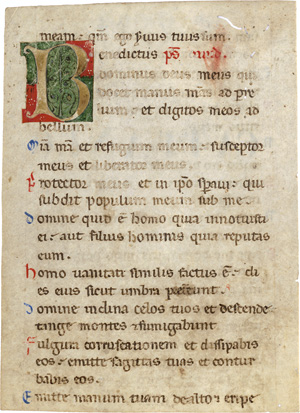 meam. qm̄ ego seruus tuus sum.
Benedictus
dominus deus meus qui
docet manus mas ad pre
lium et digitos meos ad
bellum.
Mīa mā et refugium meum: susceptor
meus et liberator meus.
Protector meus et in ipō speraui: qui
subdit populum meum sub me.
Domine quid ē homo quia innotuisti
ei: aut filius hominis quia reputas
eum.
homo uanitati similis factus ē: di
es eius sicut umbra pretereunt.
Domine inclina celos tuos et descende
tange montes et fumigabunt.
Fulgura coruscationem et dissipabis
eos: emitte sagittas tuas et contur
babis eos.
Emitte manum tuam de alto: eripe